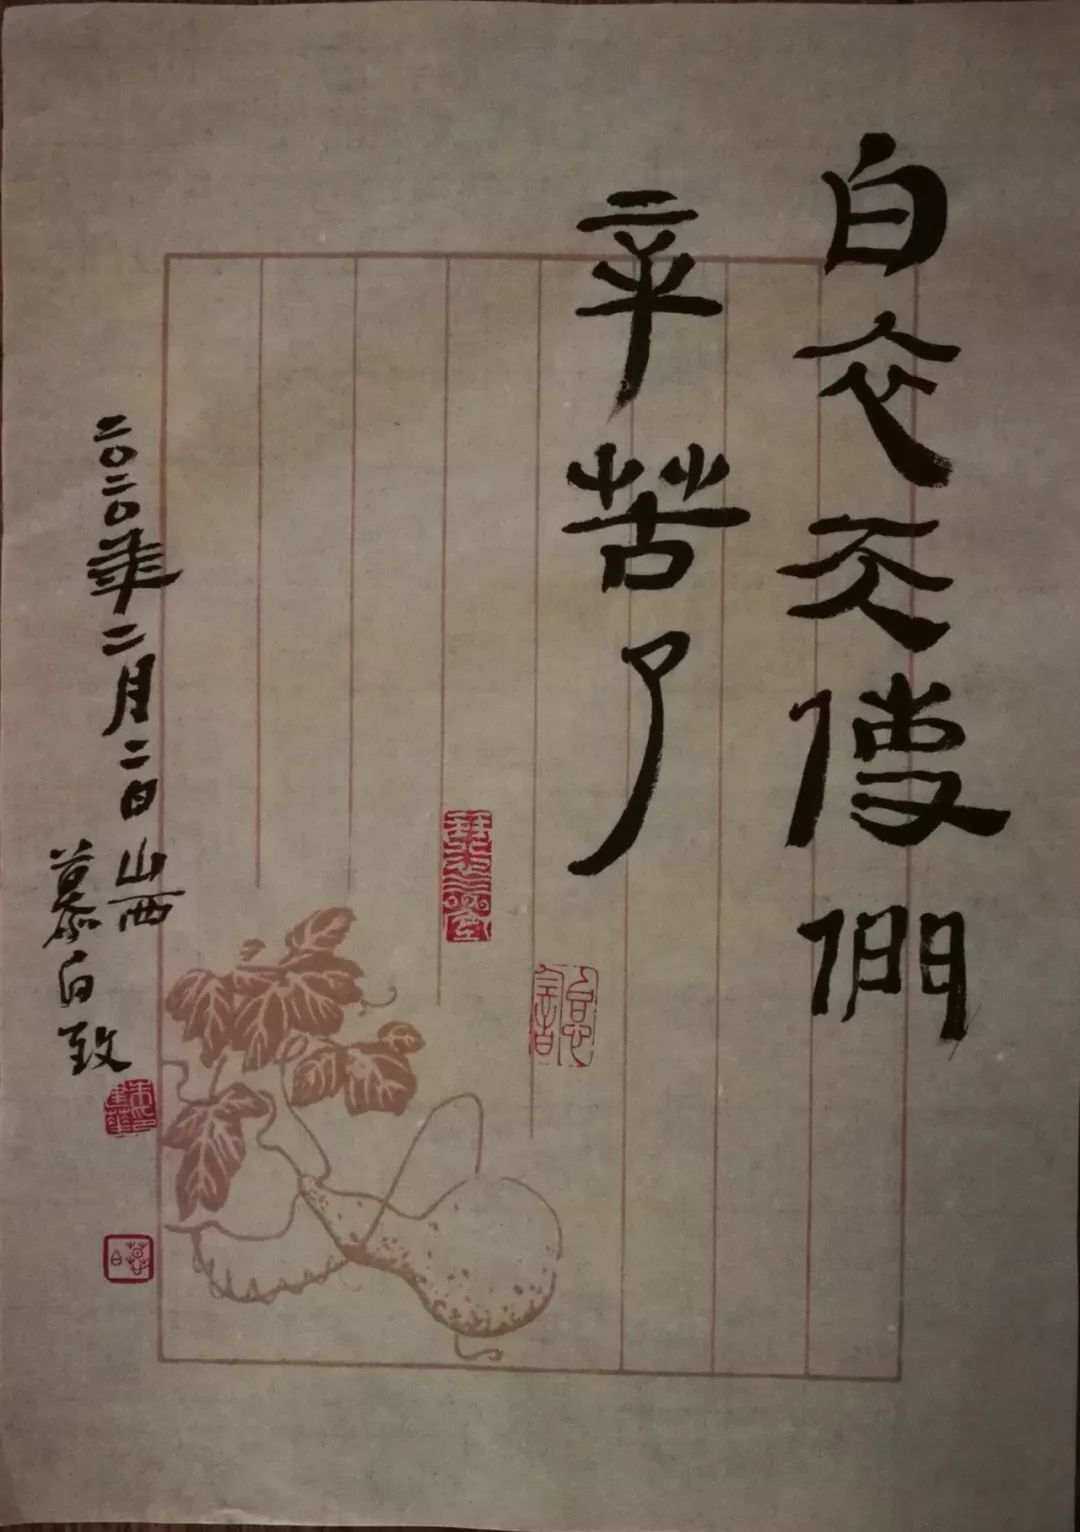 白衣天使們
辛苦了
二〇二〇年二月二日山西
慕白致
慕白